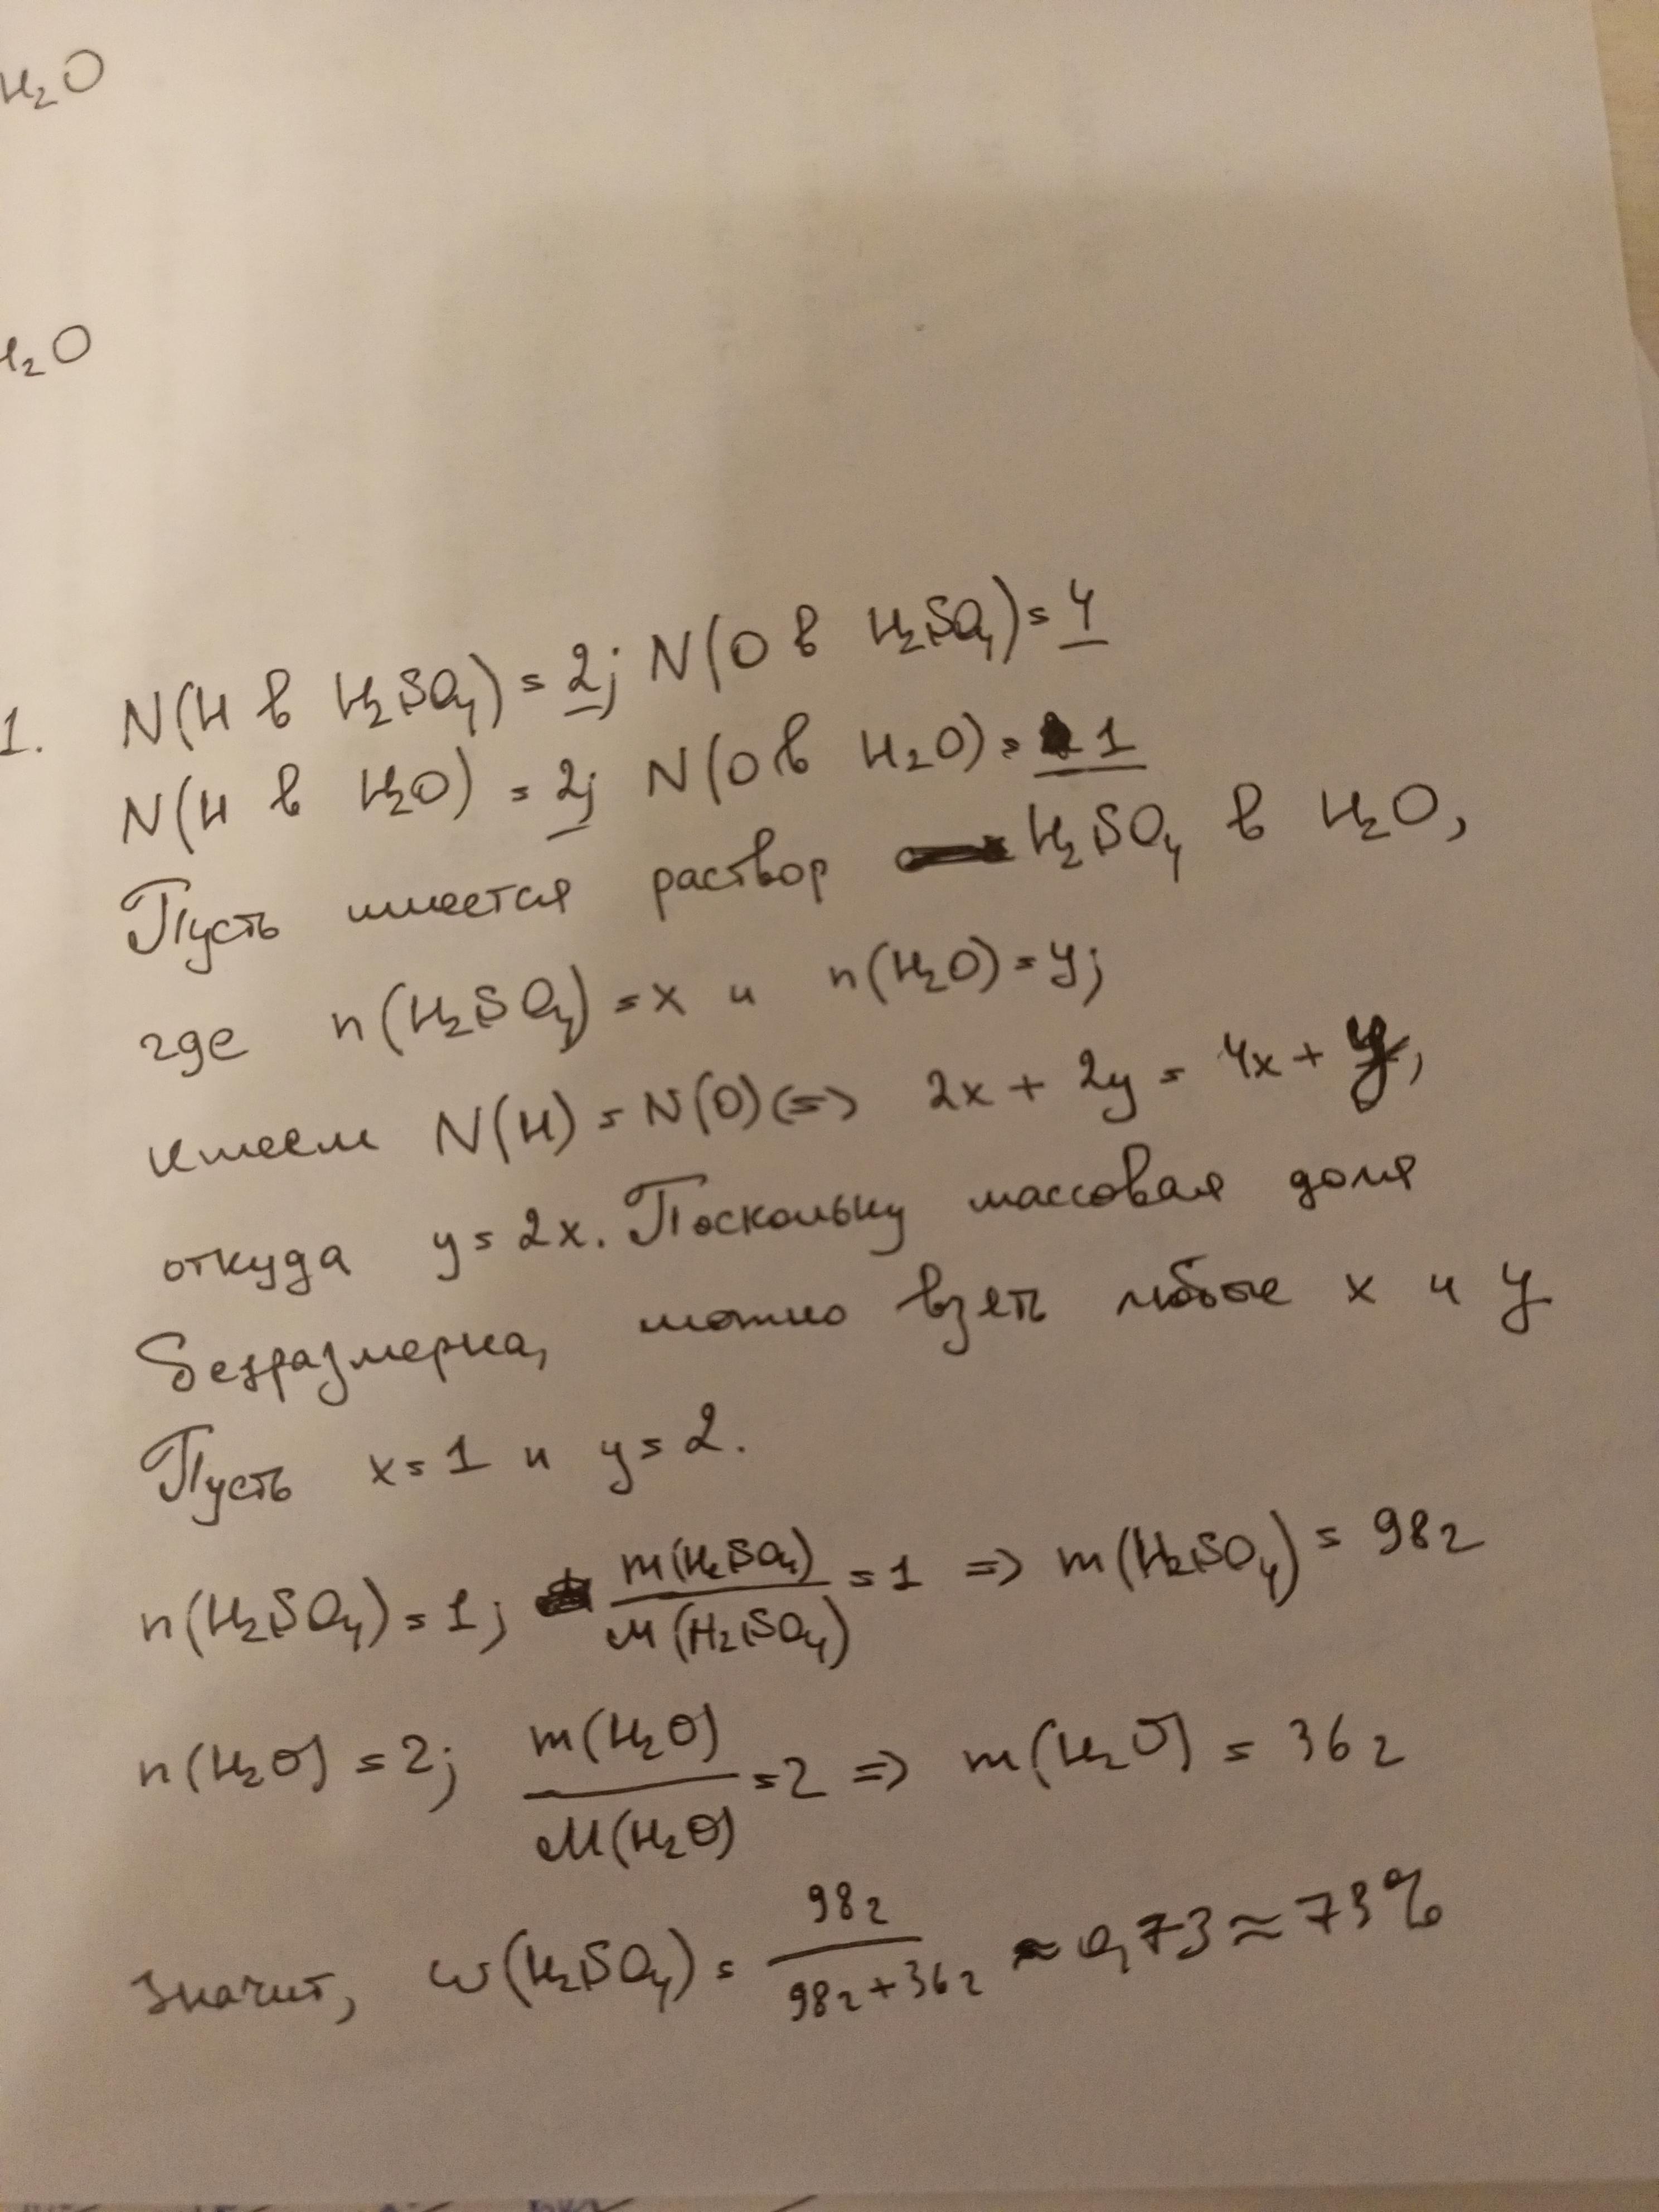 H₂O
H₂O
1. N(H в H₂SO₄) = 2; N(O в H₂SO₄) = 4
N(H в H₂O) = 2; N(O в H₂O) = 1
Пусть имеется раствор H₂SO₄ в H₂O,
где n(H₂SO₄) = x и n(H₂O) = y;
имеем N(H) = N(O) <=> 2x + 2y = 4x + y,
откуда y = 2x. Поскольку массовая доля
безразмерна, можно взять любые x и y
Пусть x = 1 и y = 2.
n(H₂SO₄) = 1; m(H₂SO₄)/M(H₂SO₄) = 1 => m(H₂SO₄) = 98 г
n(H₂O) = 2; m(H₂O)/M(H₂O) = 2 => m(H₂O) = 36 г
Значит, w(H₂SO₄) = 98 г/(98 г + 36 г) ≈ 0,73 ≈ 73%